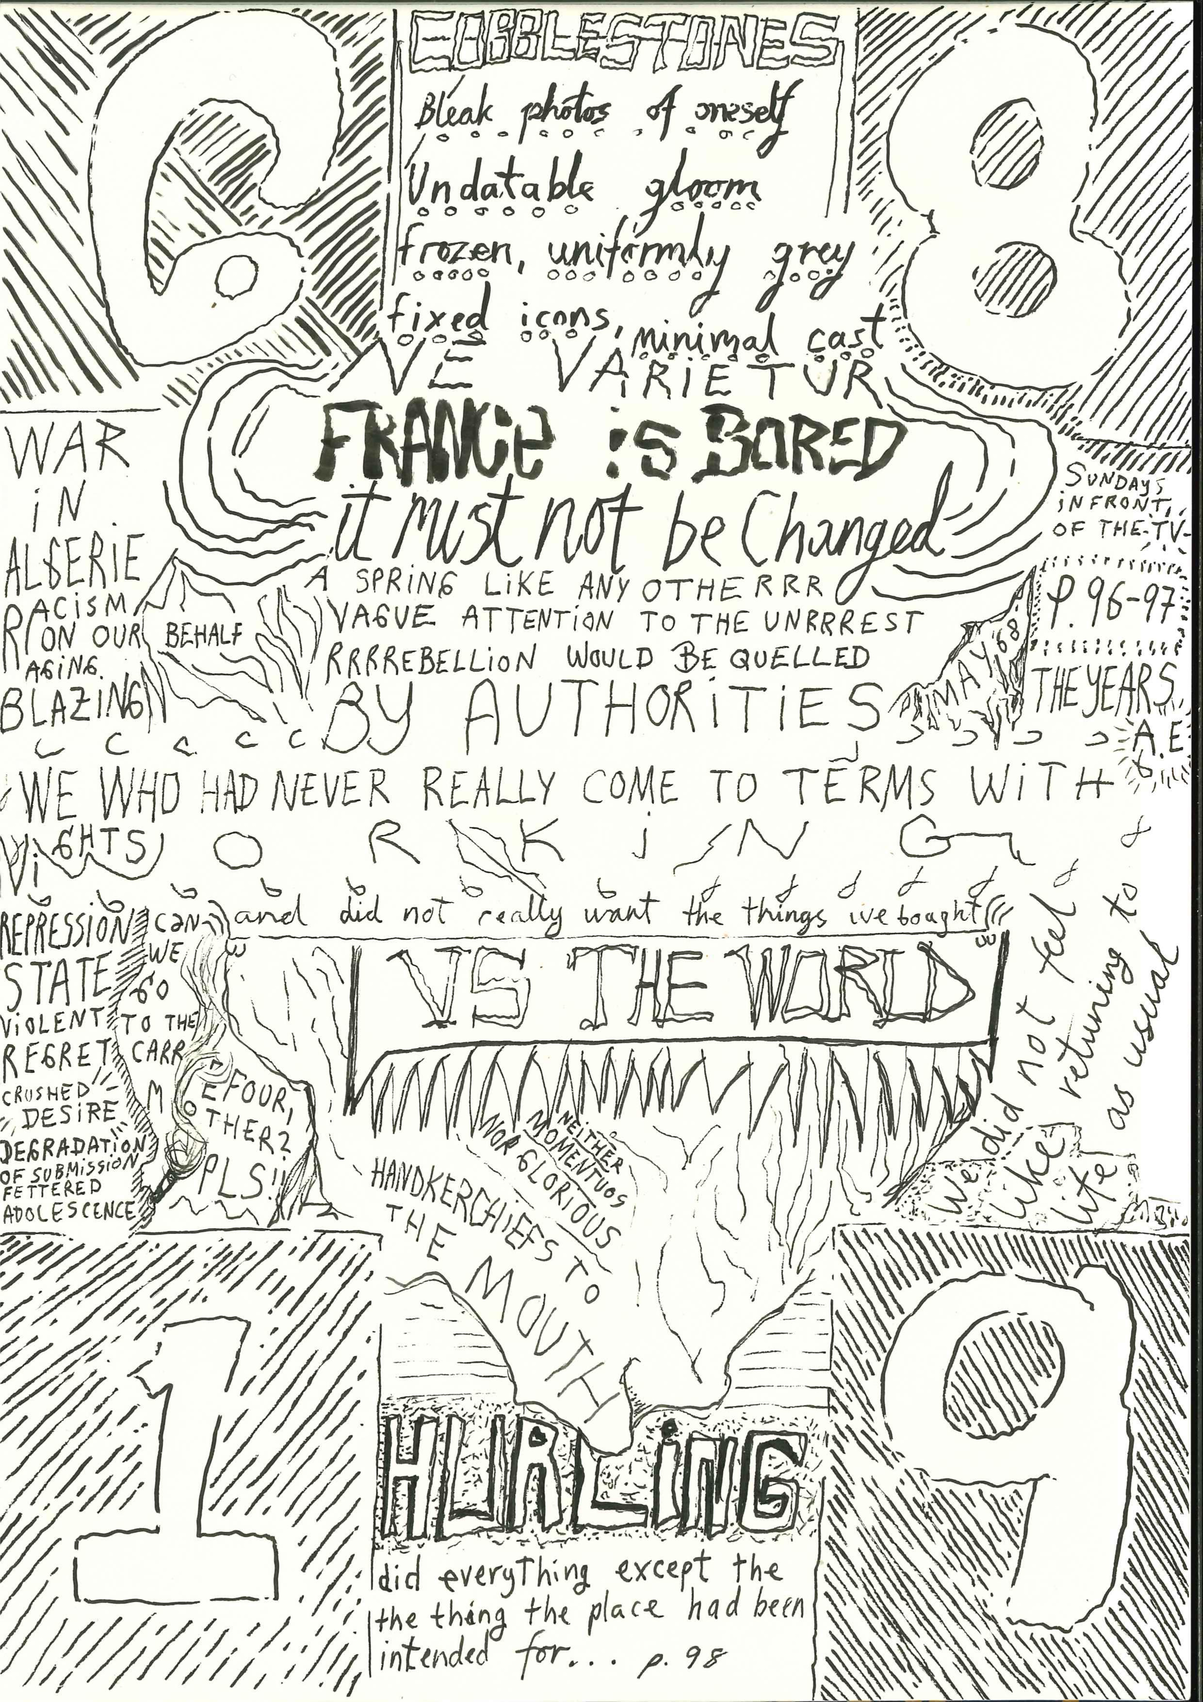 68
COBBLESTONES
Bleak photos of oneself
Undatable gloom
frozen, uniformly grey
fixed icons, minimal cast
NE VARIETUR
FRANCE is BORED
it must not be Changed
A SPRING LIKE ANY OTHERRR
VAGUE ATTENTION TO THE UNRRREST
RRRREBELLION WOULD BE QUELLED
BY AUTHORITIES
WAR
iN
ALGERIE
RACISM
ON OUR
AGING.
BLAZING
BEHALF
SUNDAYS
IN FRONT,
OF THE TV
P. 96-97
MAY 68
THE YEARS
A.E
WE WHO HAD NEVER REALLY COME TO TERMS WITH
WORKING
NIGHTS
and did not really want the things ive bought
VS THE WORLD
REPRESSION
STATE
VIOLENT
REGRET
CRUSHED
DESIRE
DEGRADATION
OF SUBMISSION
FETTERED
ADOLESCENCE
CAN
WE
GO
TO THE
CARR
EFOUR,
MOTHER?
PLS!!
We did not feel
like returning to
life as usual
NEITHER
MOMENTUOS
NOR GLORIOUS
HANDKERCHIEFS TO
THE MOUTH
HURLING
did everything except the
the thing the place had been
intended for... p. 98
19